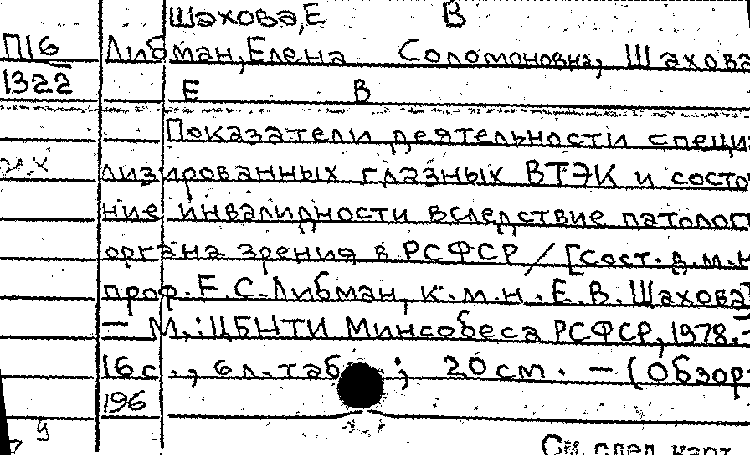 Шахова,Е В
П16 Либман,Елена Соломоновна, Шахова
1322 Е В
Показатели деятельности специ
лизированных глазных ВТЭК и состо
ние инвалидности вследствие патолог
органа зрения в РСФСР / [Сост. д.м.н
проф. Е.С.Либман, к.м.н. Е.В.Шахова]
— М.:ЦБНТИ Минсобеса РСФСР, 1978.–
16с., 6л.табл; 20см. — (Обзор
196
9
См. след. карт